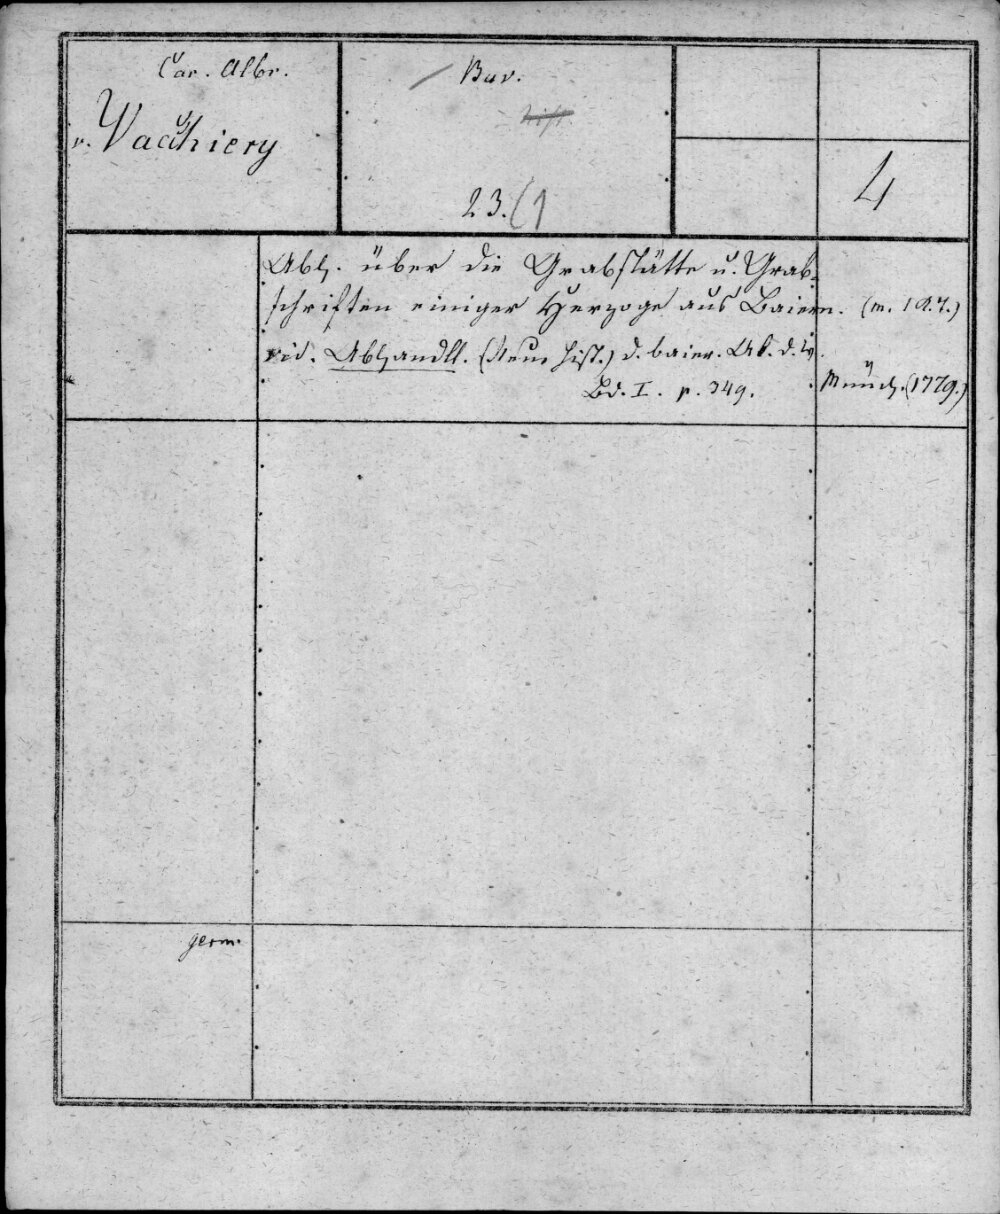 Car. Albr.
v. Vacchiery
Bav.
Hist.
23. (1
4
Abh. über die Grabstätte u. Grab-
schriften einiger Herzoge aus Baiern. (m. 1 A.T.)
vid. Abhandll. (Neue hist.) d. baier. Ak. d. W.
Bd. I. p. 349. Münch. (1779.)
germ.